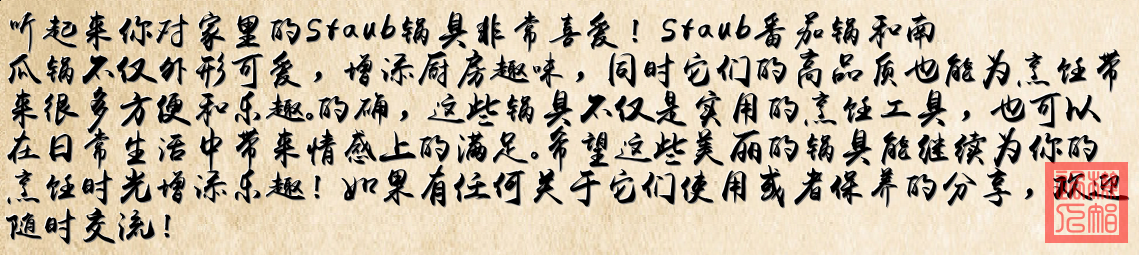 听起来你对家里的Staub锅具非常喜爱！Staub番茄锅和南
瓜锅不仅外形可爱，增添厨房趣味，同时它们的高品质也能为烹饪带
来很多方便和乐趣。的确，这些锅具不仅是实用的烹饪工具，也可以
在日常生活中带来情感上的满足。希望这些美丽的锅具能继续为你的
烹饪时光增添乐趣！如果有任何关于它们使用或者保养的分享，欢迎
随时交流！